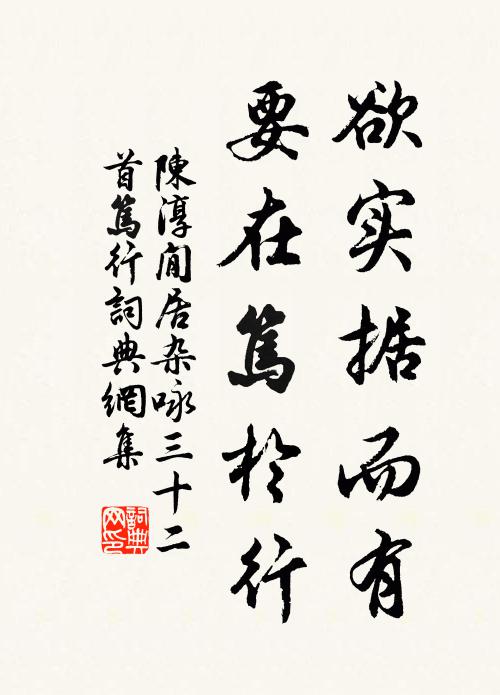 欲实据而有
要在篤於行
陳淳閒居杂咏三十二
首篤行詞典網集
詞典
网印